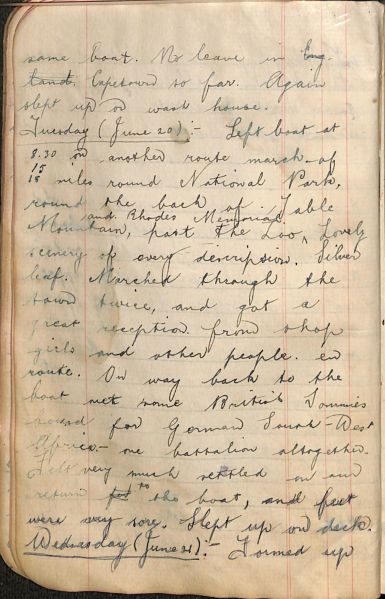 same boat. No leave in Eng-
land. Capetown so far. Again
slept up on wash house.
Tuesday (June 20):- Left boat at
8.30 on another route march of
15
miles round National Park,
round the back of Table
and Rhodes Memorial
Mountain, past the Zoo, Lovely
scenery of every description. Silver
leaf. Marched through the
town twice, and got a
great reception from shop
girls and other people. en
route. On way back to the
boat met some British Tommies
bound for German South-West
Africa - one battalion altogether.
Felt very much settled on our
return to the boat, and feet
were very sore. Slept up on deck.
Wednesday (June 21):- Formed up